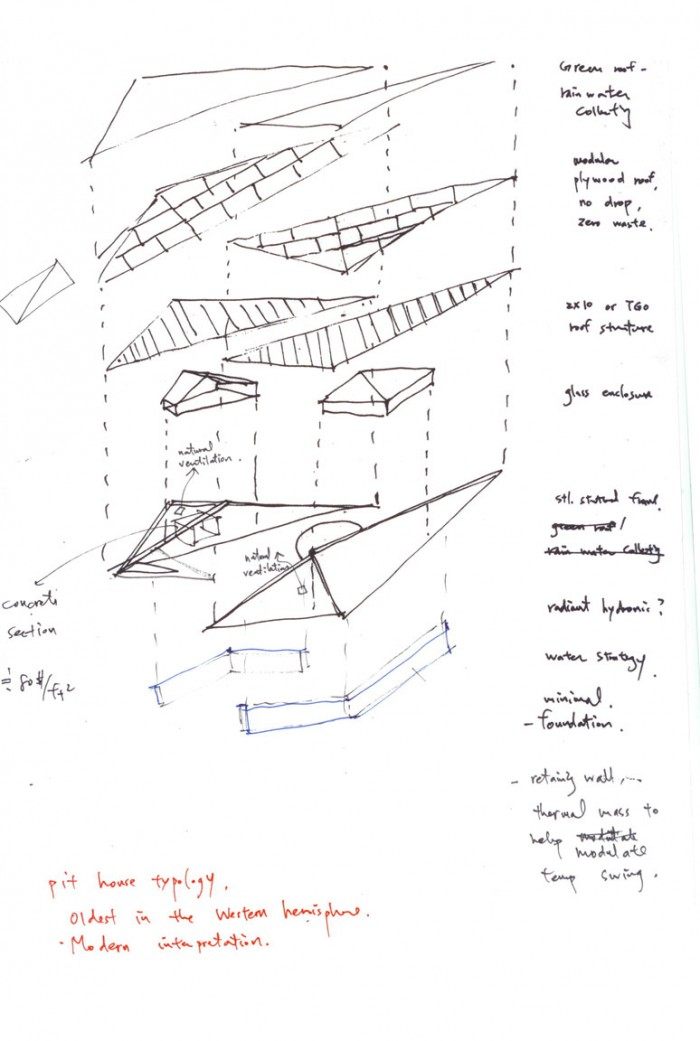 Green roof -
rain water
collecty
modular
plywood roof,
no drop,
zero waste.
2x10 or TGO
roof structure
glass enclosure
natural
ventilation.
stl. frame.
green roof /
rain water collecty
natural
ventilation
concrete
section
80 $/ft2
radiant hydronic?
water strategy.
minimal.
- foundation.
- retaing wall,...
thermal mass to
help modulate
modulate
temp swing.
pit house typology.
Oldest in the Western hemisphere.
- Modern interpretation.